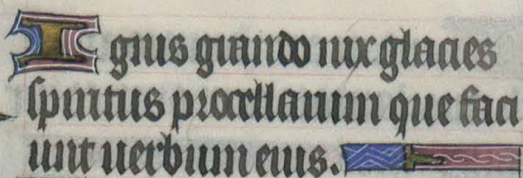 Ignis grando nix glacies
spiritus procellarum que faci
unt uerbum eius.